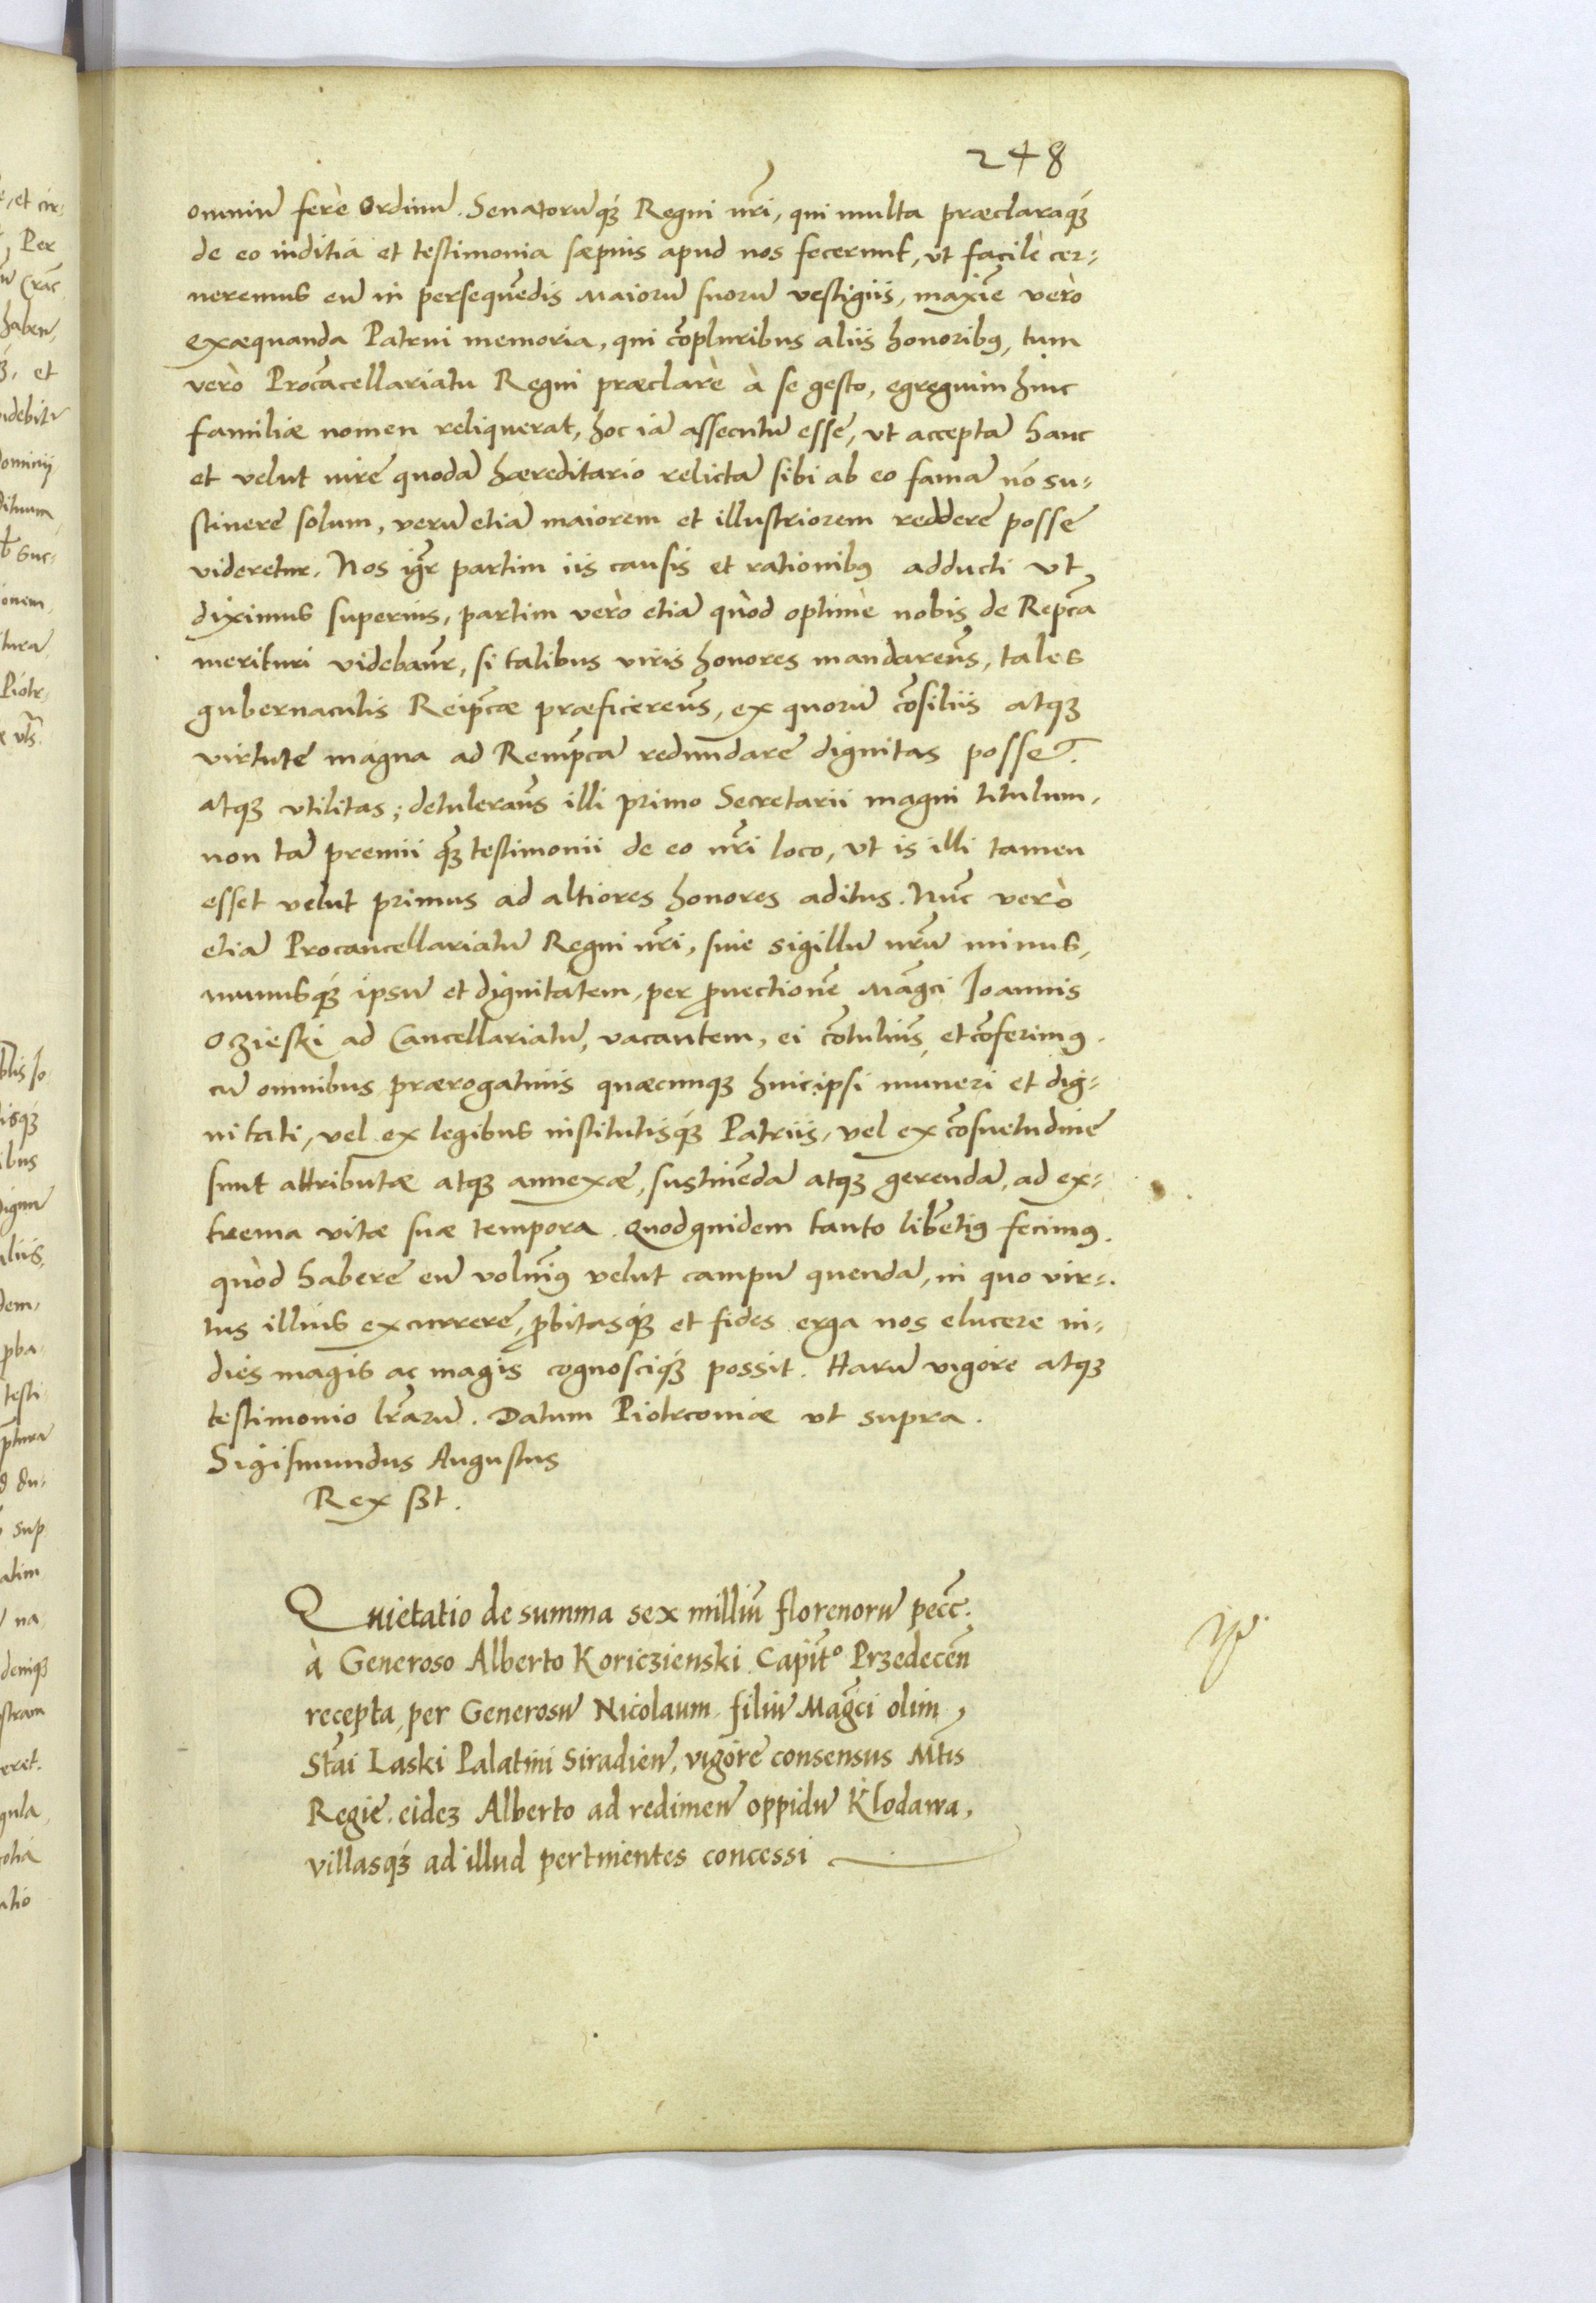 248
omniũ ferè Ordinũ. Senatorũq́ꝫ Regni nr̃i, qui multa præclaraq́ꝫ
de eo inditia et testimonia sæpius apud nos fecerunt, vt facilè cer-
neremus eũ in persequẽdis Maiorũ suorũ vestigiis, maxĩe verò
exæquanda Patrui memoria, qui cõpluribus aliis honoribꝰ, tum
verò Procãcellariatu Regni præclarè à se gesto, egregium huic
familiæ nomen reliquerat, hoc iã assecutũ esse, vt acceptã hanc
et velut iure quodã hæreditario relictã sibi ab eo famã nõ su-
stinere solum, verũ etiã maiorem et illustriorem reddere posse
videretur. Nos igr̃ partim iis causis et rationibꝰ adducti vt
diximus superius, partim verò etiã quòd optimè nobis de Repc̃a
merituri videbam̃r, si talibus viris honores mandarem̃s, tales
gubernaculis Reipc̃æ præficerem̃s, ex quorũ cõsiliis atqꝫ
virtute magna ad Rempc̃ã redundare dignitas posset.
atqꝫ vtilitas; detuleram̃s illi primo Secretarii magni titulum,
non tã premii qꝫ̃ testimonii de eo nr̃i loco, vt is illi tamen
esset velut primus ad altiores honores aditus. Nũc verò
etiã Procancellariatũ Regni nr̃i, siue sigillũ nr̃ũ minus,
munusq́ꝫ ipsũ et dignitatem, per ꝓuectionẽ Mag̃ci Joannis
Ozieski ad Cancellariatũ, vacantem, ei cõtulim̃s et cõferimꝰ.
cũ omnibus prærogatiuis quæcunqꝫ huic ipsi muneri et dig-
nitati, vel ex legibus institutisq́ꝫ Patriis, vel ex cõsuetudine
sunt attributæ atqꝫ annexæ, sustinẽdã atqꝫ gerendã, ad ex-
trema vitæ suæ tempora. Quod quidem tanto libẽtiꝰ fecimꝰ.
quòd habere eũ voluim̃ꝰ velut campũ quendã, in quo vir-
tus illius excurrere, ꝓbitasq́ꝫ et fides erga nos elucere in-
dies magis ac magis cognosciq́ꝫ possit. Harũ vigore atqꝫ
testimonio lr̃arũ. Datum Piotrconiæ vt supra.
Sigismundus Augustus
Rex sst.
Quietatio de summa sex milliũ florenorũ pecc̃.
à Generoso Alberto Koriczienski Capit̃º Przedecẽn
recepta, per Generosũ Nicolaum filiũ Mag̃ci olim
Stãi Laski Palatini Siradieñ, vigore consensus Mt̃is
Regie. eidẽ Alberto ad redimeñ oppidũ Klodawa,
villasq́ꝫ ad illud pertinentes concessi